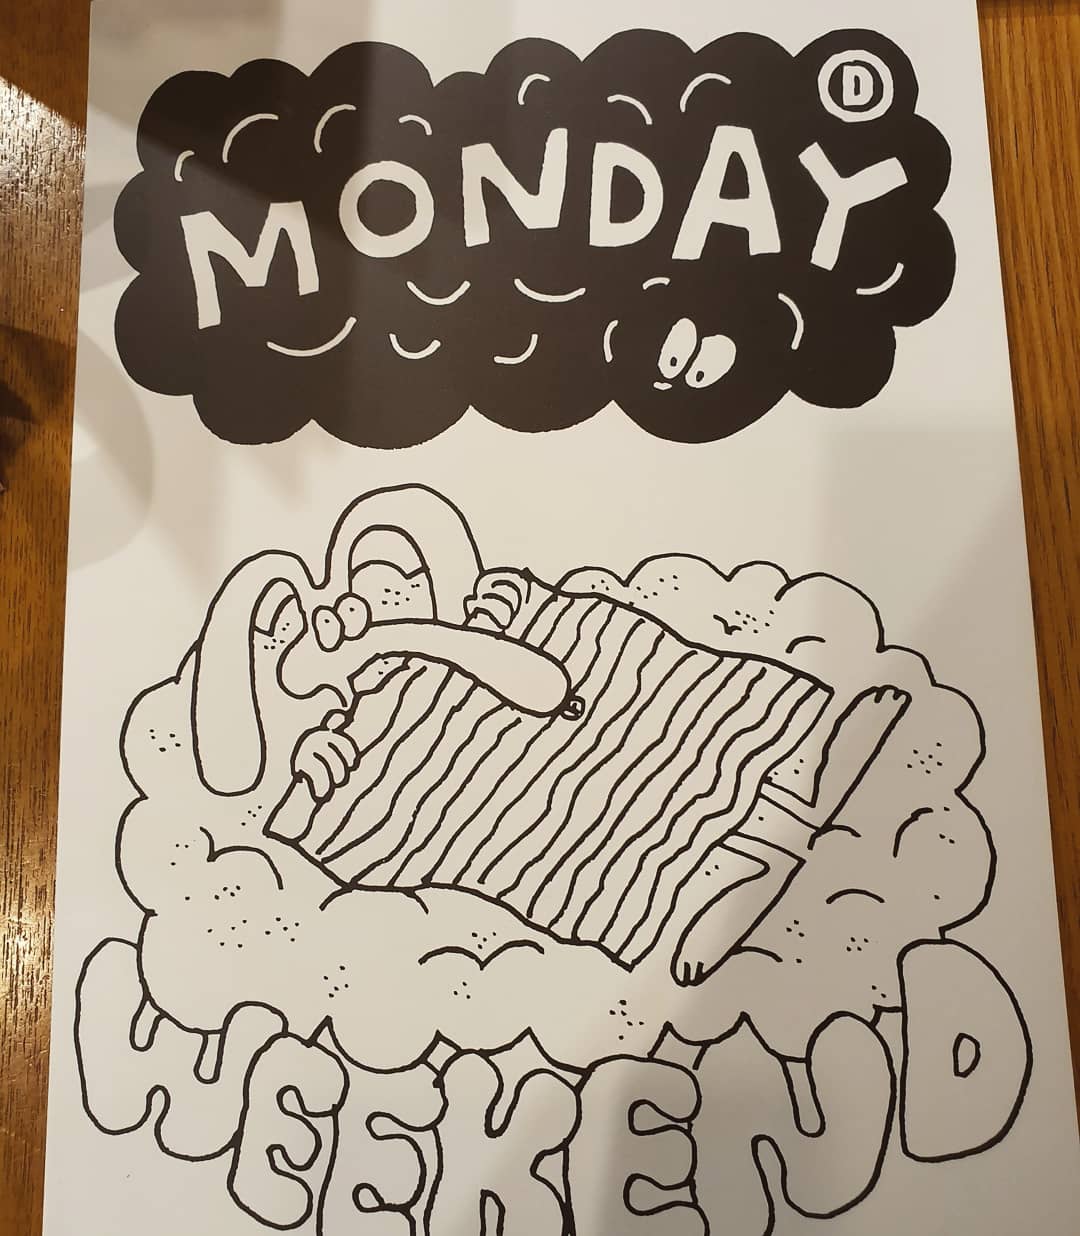 D
MONDAY
WEEKEND